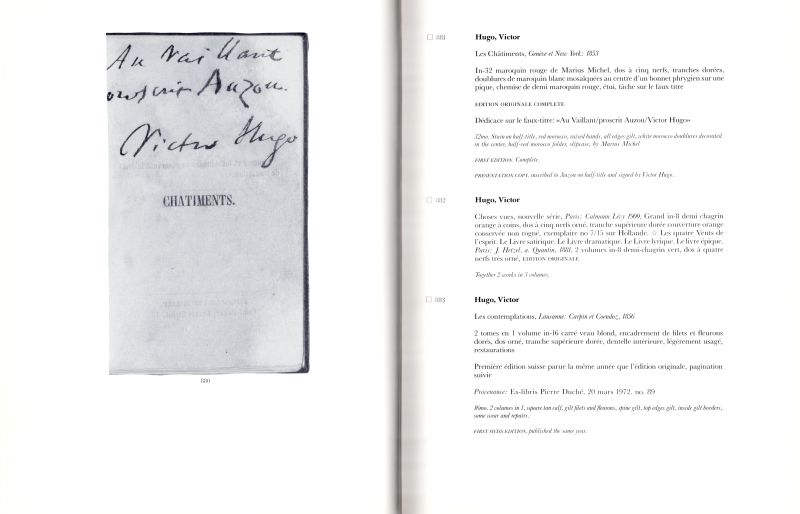 Au Vaillant
proscrit Auzou.
Victor Hugo
CHATIMENTS.
880
881
Hugo, Victor
Les Châtiments, Genève et New York: 1853
In-32 maroquin rouge de Marius Michel, dos à cinq nerfs, tranches dorées,
doublures de maroquin blanc mosaïquées au centre d'un bonnet phrygien sur une
pique, chemise de demi maroquin rouge, étui, tâche sur le faux titre
EDITION ORIGINALE COMPLETE
Dédicace sur le faux-titre: «Au Vaillant/proscrit Auzou/Victor Hugo»
32mo. Stain on half-title, red morocco, raised bands, all edges gilt, white morocco doublures decorated
in the center, half-red morocco folder, slipcase, by Marius Michel
FIRST EDITION. Complete.
PRESENTATION COPY, inscribed to Auzou on half-title and signed by Victor Hugo.
882
Hugo, Victor
Choses vues, nouvelle série, Paris: Calmann Lévy 1900, Grand in-8 demi chagrin
orange à coins, dos à cinq nerfs orné, tranche supérieure dorée couverture orange
conservée non rogné, exemplaire no 7/15 sur Hollande. ☆ Les quatre Vents de
l'esprit. Le Livre satirique. Le Livre dramatique. Le Livre lyrique. Le livre épique.
Paris: J. Hetzel, a. Quantin, 1881, 2 volumes in-8 demi-chagrin vert, dos à quatre
nerfs très orné, EDITION ORIGINALE
Together 2 works in 3 volumes.
883
Hugo, Victor
Les contemplations, Lausanne: Corpin et Coendoz, 1856
2 tomes en 1 volume in-16 carré veau blond, encadrement de filets et fleurons
dorés, dos orné, tranche supérieure dorée, dentelle intérieure, légèrement usagé,
restaurations
Première édition suisse parue la même année que l'édition originale, pagination
suivie
Provenance: Ex-libris Pierre Duché, 20 mars 1972, no. 89
16mo. 2 volumes in 1, square tan calf, gilt filets and fleurons, spine gilt, top edges gilt, inside gilt borders,
some wear and repairs.
FIRST SWISS EDITION, published the same year.